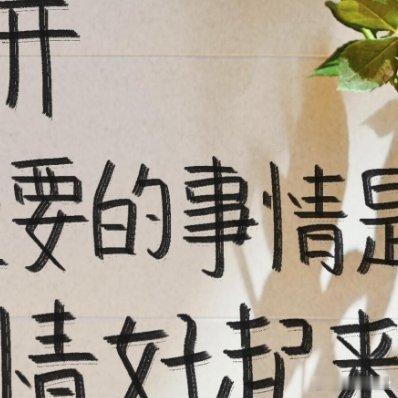 开
要的事情是
情好起来